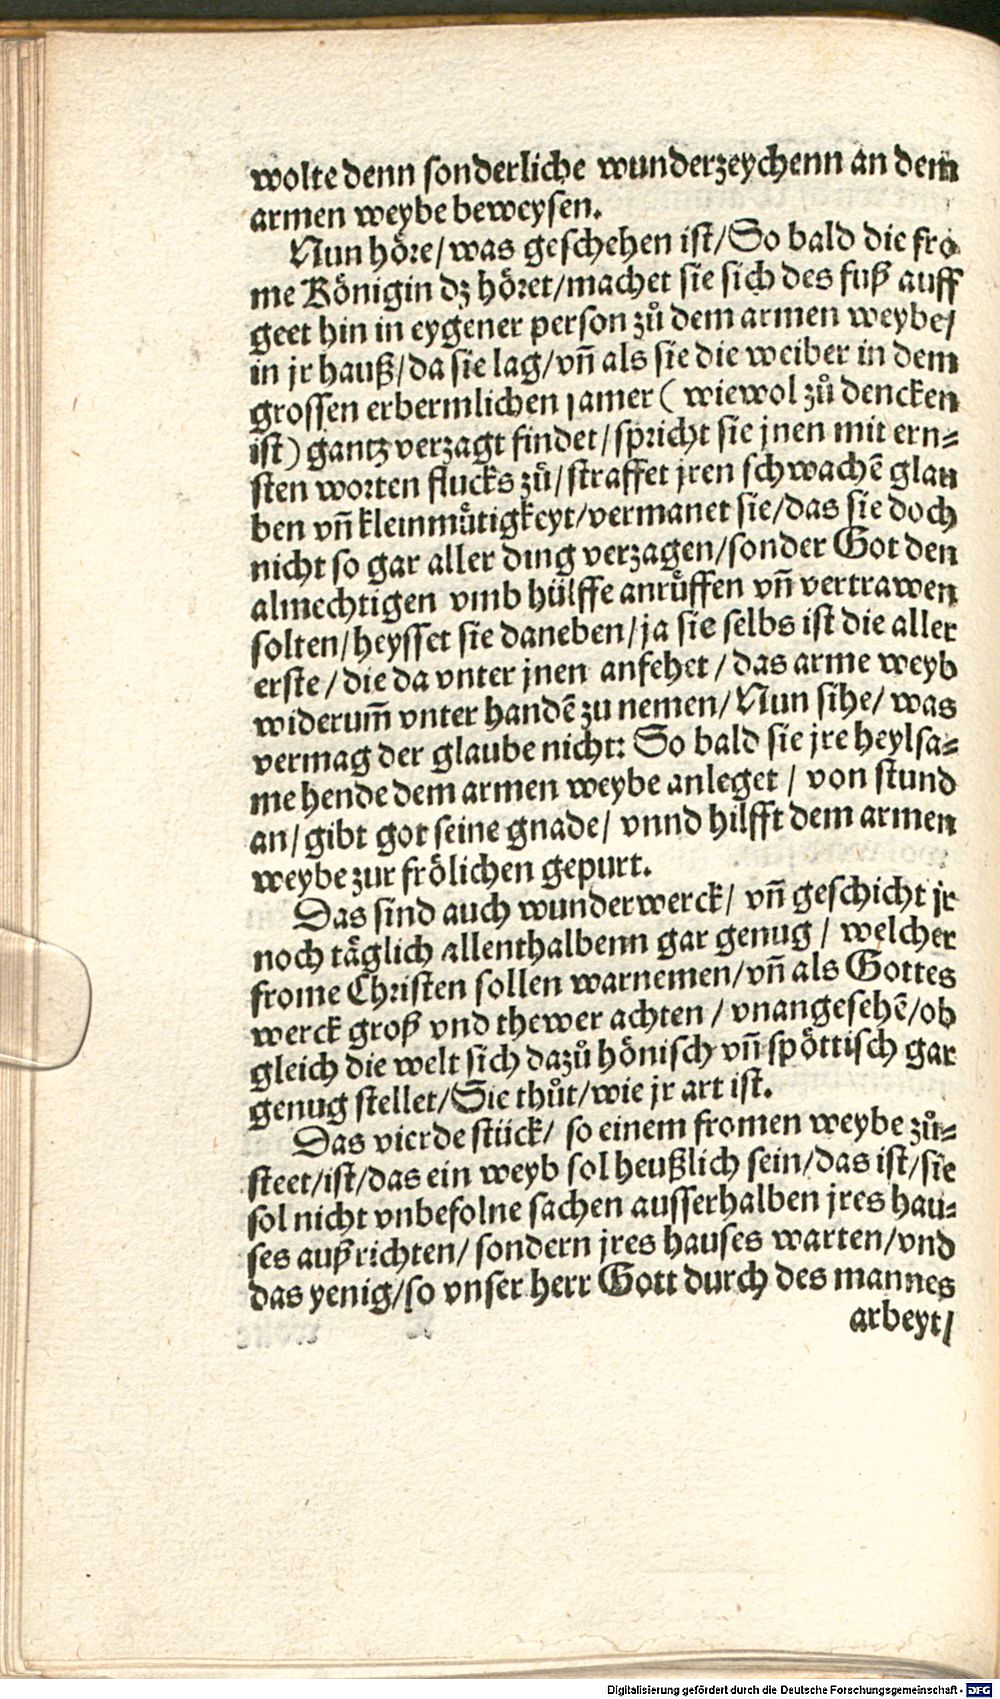 wolte denn sonderliche wunderzeychenn an dem
armen weybe beweysen.
Nun höre/was geschehen ist/So bald die fro
me Königin dz höret/machet sie sich des fuß auff
geet hin in eygener person zů dem armen weybe/
in jr hauß/da sie lag/vñ als sie die weiber in dem
grossen erbermlichen jamer ( wiewol zů dencken
ist) gantz verzagt findet/spricht sie jnen mit ern=
sten worten flucks zů/straffet jren schwachē glau
ben vñ kleinmůtigkeyt/vermanet sie/das sie doch
nicht so gar aller ding verzagen/sonder Got den
almechtigen vmb hülffe anrůffen vñ vertrawen
solten/heysset sie daneben/ja sie selbs ist die aller
erste/die da vnter jnen anfehet/das arme weyb
widerum̃ vnter handē zu nemen/Nun sihe/was
vermag der glaube nicht: So bald sie jre heylsa=
me hende dem armen weybe anleget / von stund
an/gibt got seine gnade/ vnnd hilfft dem armen
weybe zur frölichen gepurt.
Das sind auch wunderwerck/ vñ geschicht jr
noch täglich allenthalbenn gar genug / welcher
frome Christen sollen warnemen/vñ als Gottes
werck groß vnd thewer achten / vnangesehē/ob
gleich die welt sich dazů hönisch vñ spöttisch gar
genug stellet/Sie thůt/wie jr art ist.
Das vierde stück/ so einem fromen weybe zů=
steet/ist/das ein weyb sol heußlich sein/das ist/sie
sol nicht vnbefolne sachen ausserhalben jres hau=
ses außrichten/ sondern jres hauses warten/vnd
das yenig/so vnser herr Gott durch des mannes
arbeyt/
Digitalisierung gefördert durch die Deutsche Forschungsgemeinschaft - DFG